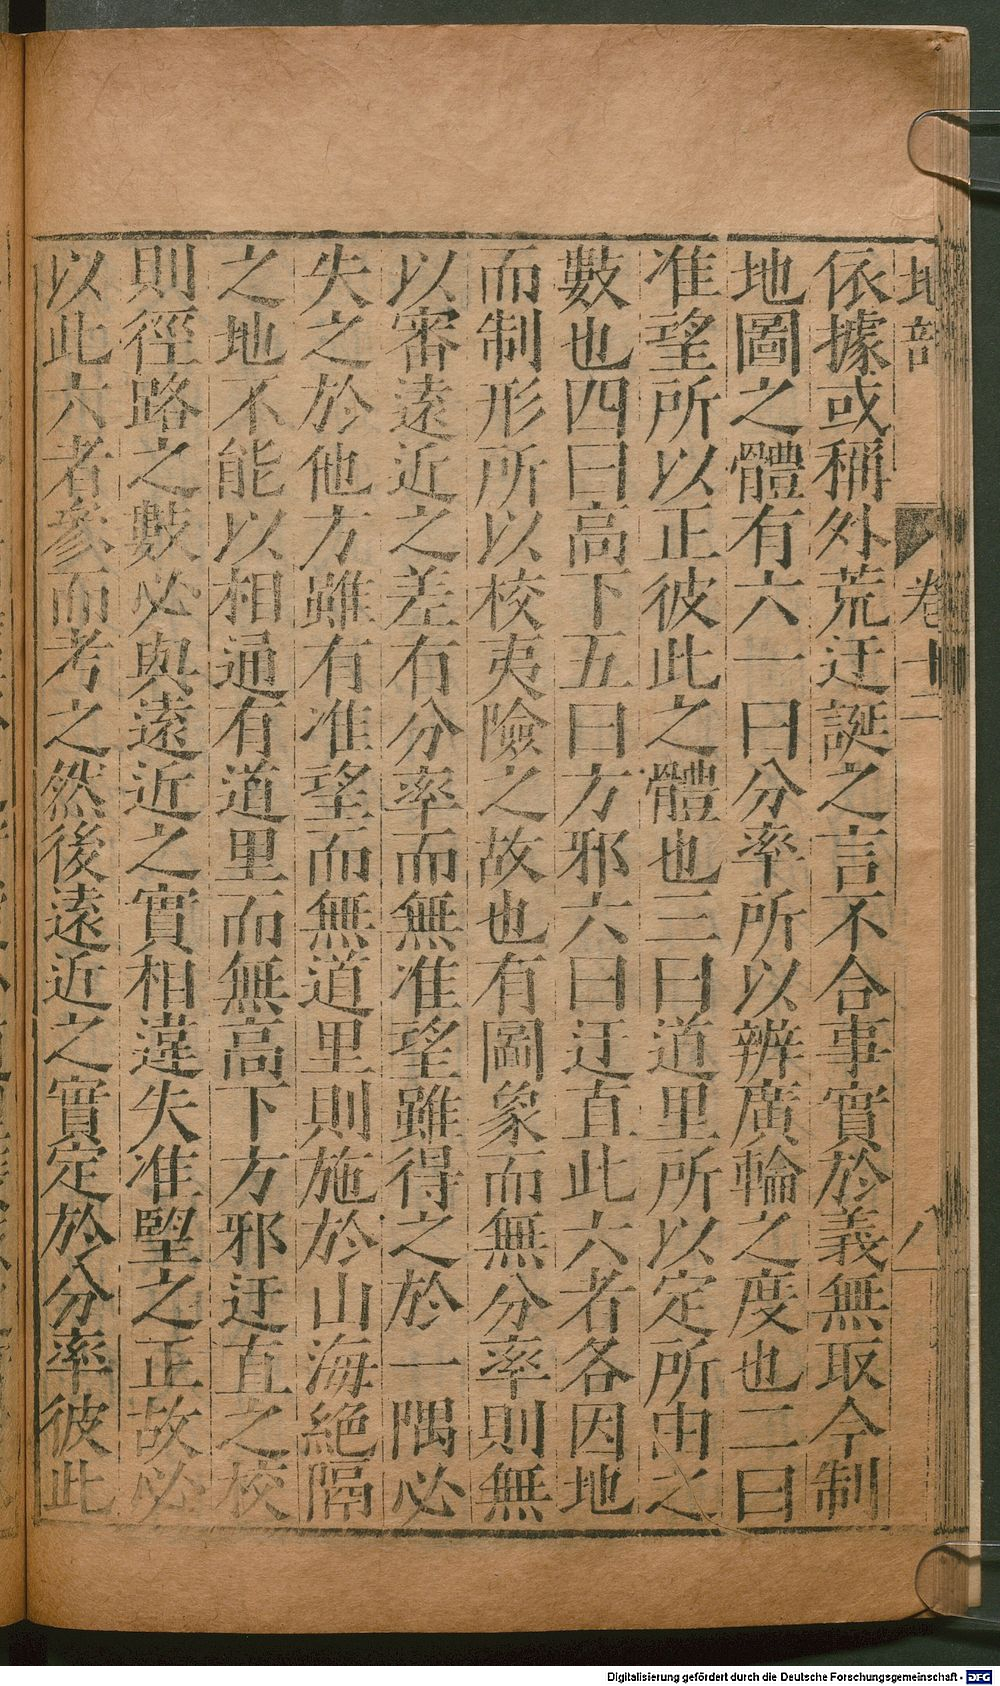 地部 卷十二 八
依據或稱外荒迂誕之言不合事實於義無取今制
地圖之體有六一曰分率所以辨廣輪之度也二曰
准望所以正彼此之體也三曰道里所以定所由之
數也四曰高下五曰方邪六曰迂直此六者各因地
而制形所以校夷險之故也有圖象而無分率則無
以審遠近之差有分率而無准望雖得之於一隅必
失之於他方雖有准望而無道里則施於山海絕隔
之地不能以相通有道里而無高下方邪迂直之校
則徑路之數必與遠近之實相違失准望之正故必
以此六者參而考之然後遠近之實定於分率彼此
Digitalisierung gefördert durch die Deutsche Forschungsgemeinschaft - DFG